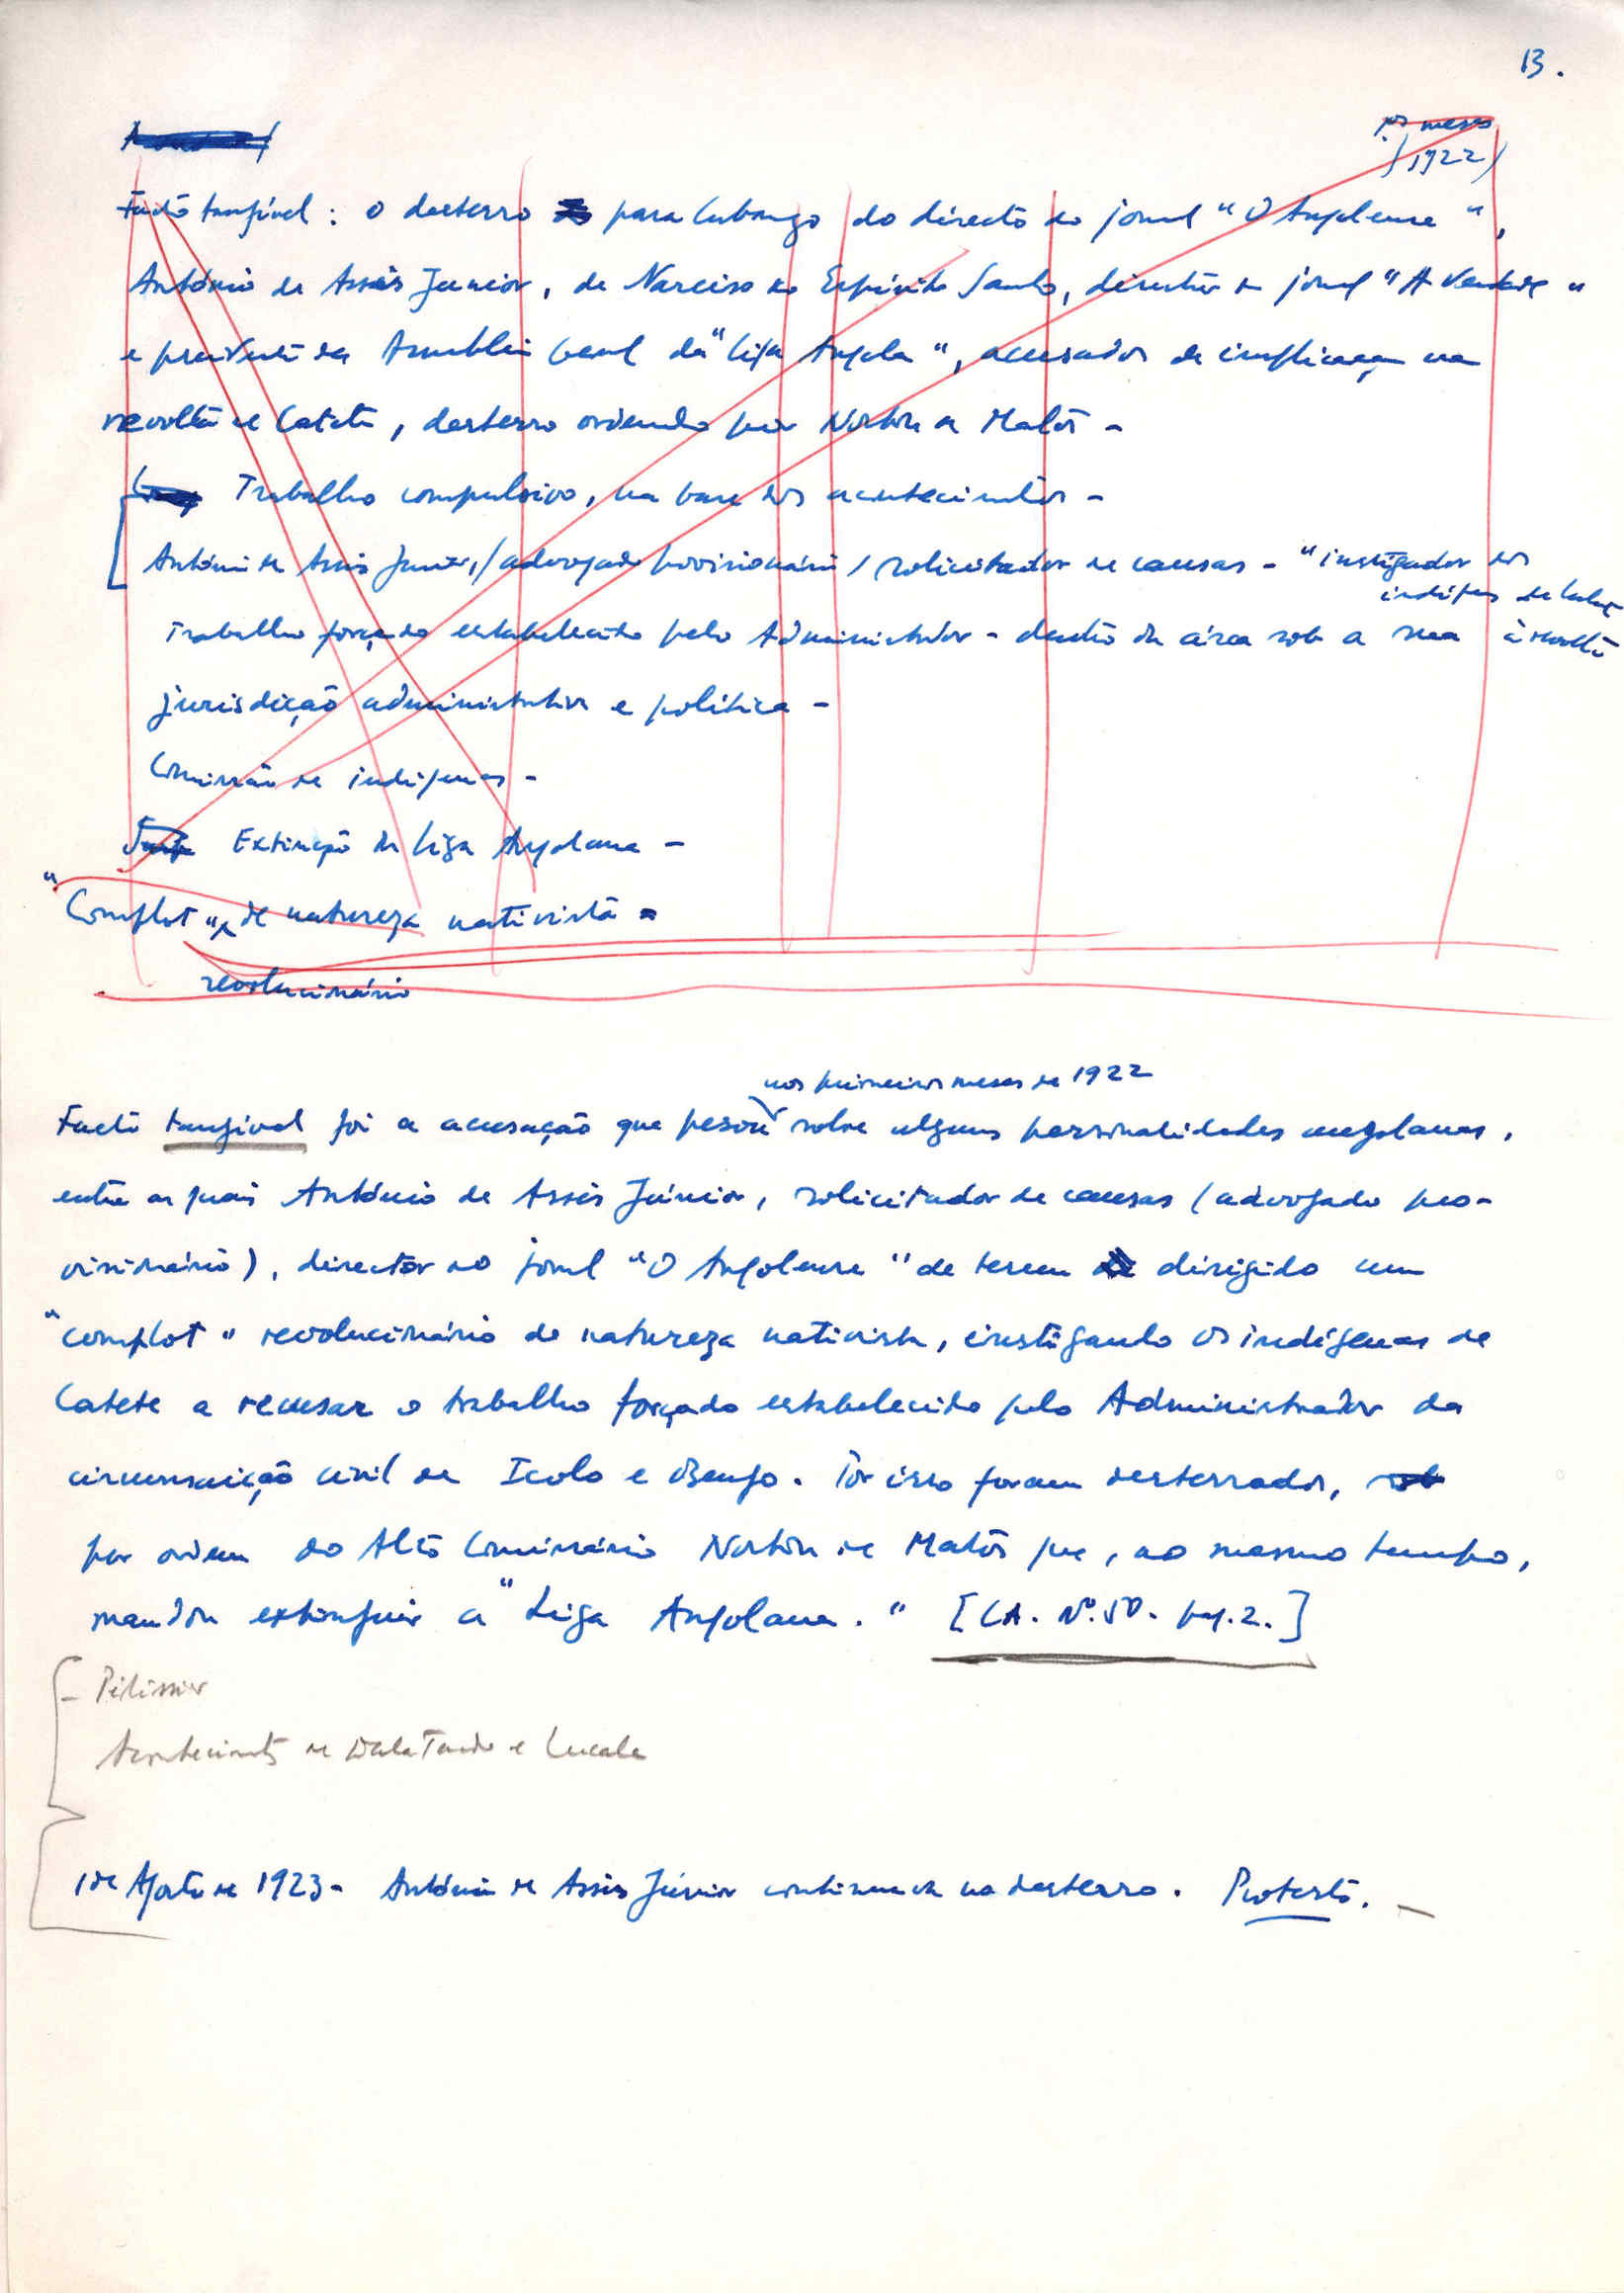 13.
1os meses
(1922)
Facto tangível : o desterro para Lubango do director do jornal "O Angolense",
António de Assis Junior, de Narciso do Espírito Santo, director do jornal "A Verdade"
e presidente da Assembleia Geral da "Liga Angola", acusados de implicação na
revolta de Catete, desterro ordenado por Norton de Matos -
Trabalho compulsivo, na base dos acontecimentos -
António de Assis Junior, /advogado provisionário / solicitador de causas - "instigador dos
indígenas de Catete
à revolta
Trabalho forçado estabelecido pelo Administrador - dentro da área sob a sua
jurisdição administrativa e política -
Comissão de indígenas -
Extinção da Liga Angolana -
"Complot" de natureza nativista -
revolucionário
nos primeiros meses de 1922
Facto tangível foi a acusação que pesou sobre algumas personalidades angolanas,
entre as quais António de Assis Júnior, solicitador de causas (advogado pro-
visionário), director do jornal "O Angolense" de terem dirigido um
"complot" revolucionário de natureza nativista, instigando os indígenas de
Catete a recusar o trabalho forçado estabelecido pelo Administrador da
circunscrição civil de Icolo e Bengo. Por isso foram desterrados,
por ordem do Alto Comissário Norton de Matos que, ao mesmo tempo,
mandou extinguir a "Liga Angolana." [CA. Nº. 50. pag. 2.]
- Pélissier
Acontecimentos de Dala Tando e Lucala
1 de Agosto de 1923 - António de Assis Júnior continua no desterro. Protesto. -